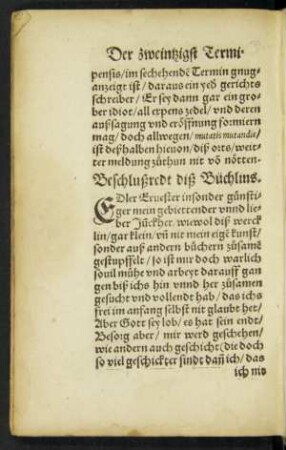 Der zweintzigst Termi-
pensis/ im sechehendē Termin gnug-
anzeigt ist/ daraus ein yeð gerichts
schreiber/ Er sey dann gar ein gro-
ber idiot/ all expens zedel/ vnd deren
außsagung vnd eröffnung formiern
mag/ doch allwegen/ mutatis mutandis/
ist deßhalben hieuon/ diß orts/ weit-
ter meldung zůthun nit vō nötten.
Beschlußredt diß Büchlins.
EDler Eruester insonder günsti-
ger mein gebiettender vnnd lie-
ber Jůckher. wiewol diß werck
lin/ gar klein/ vñ nit mein eigē kunst/
sonder auß andern bůchern zůsamē
gestupffelt/ so ist mir doch warlich
souil mühe vnd arbeyt darauff gan
gen biß ichs hin vnnd her zůsamen
gesucht vnd vollendt hab/ das ichs
frei im anfang selbst nit glaubt het/
Aber Gott sey lob/ es hat sein endt/
Besorg aber/ mir werd geschehen/
wie andern auch geschicht (die doch
so viel geschickter sindt dañ ich/ das
ich mo